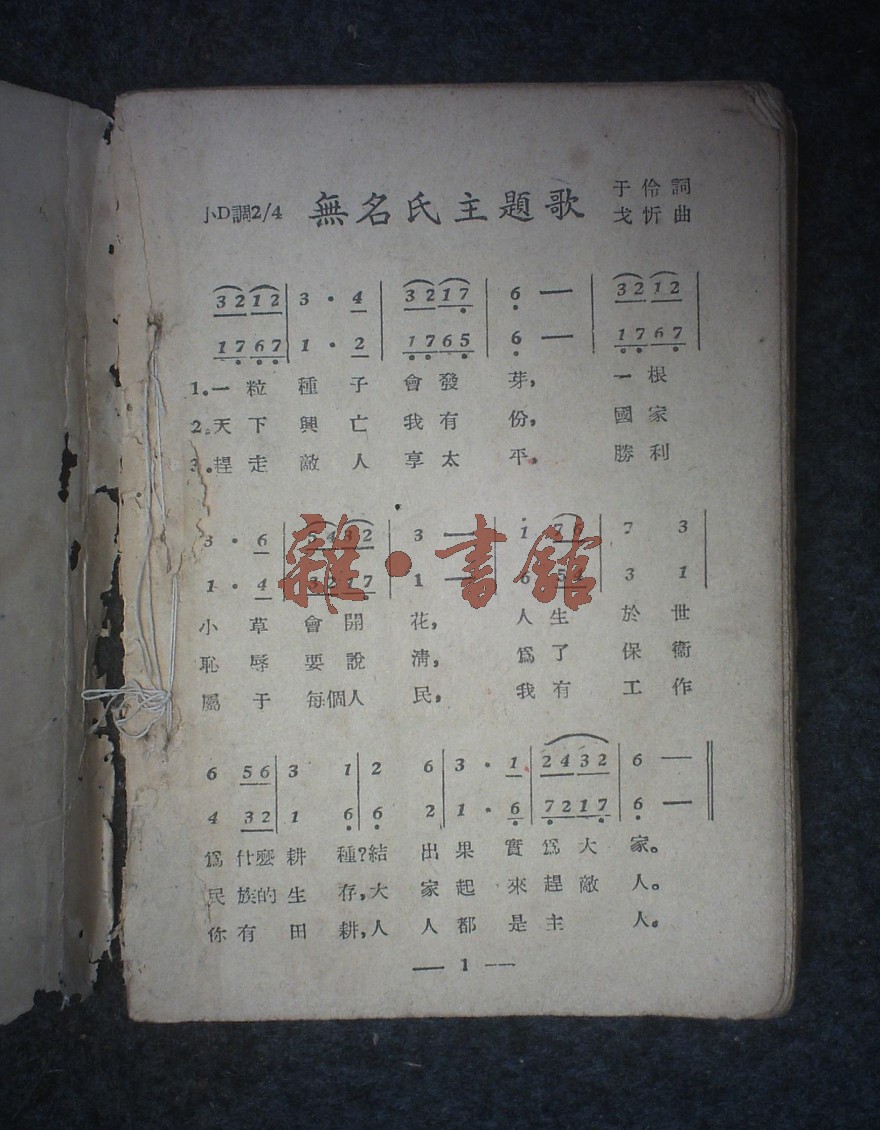 小D調2/4 無名氏主題歌 于伶詞
戈忻曲
3 2 1 2 | 3 · 4 | 3 2 1 7 | 6 — | 3 2 1 2 |
1 7 6 7 | 1 · 2 | 1 7 6 5 | 6 — | 1 7 6 7 |
1。一粒種子會發芽，一根
2。天下興亡我有份，國家
3。趕走敵人享太平，勝利
3 · 6 | 5 4 3 2 | 3 — | 1 7 6 | 7 3
1 · 4 | 3 2 1 7 | 1 — | 6 5 4 | 3 1
雜·書舘
小草會開花，人生於世
恥辱要說清，爲了保衞
屬于每個人民，我有工作
6 5 6 | 3 1 | 2 6 | 3 · 1 | 2 4 3 2 | 6 — ‖
4 3 2 | 1 6 | 6 2 | 1 · 6 | 7 2 1 7 | 6 — ‖
爲什麼耕種？結出果實爲大家。
民族的生存，大家起來趕敵人。
你有田耕，人人都是主人。
— 1 —